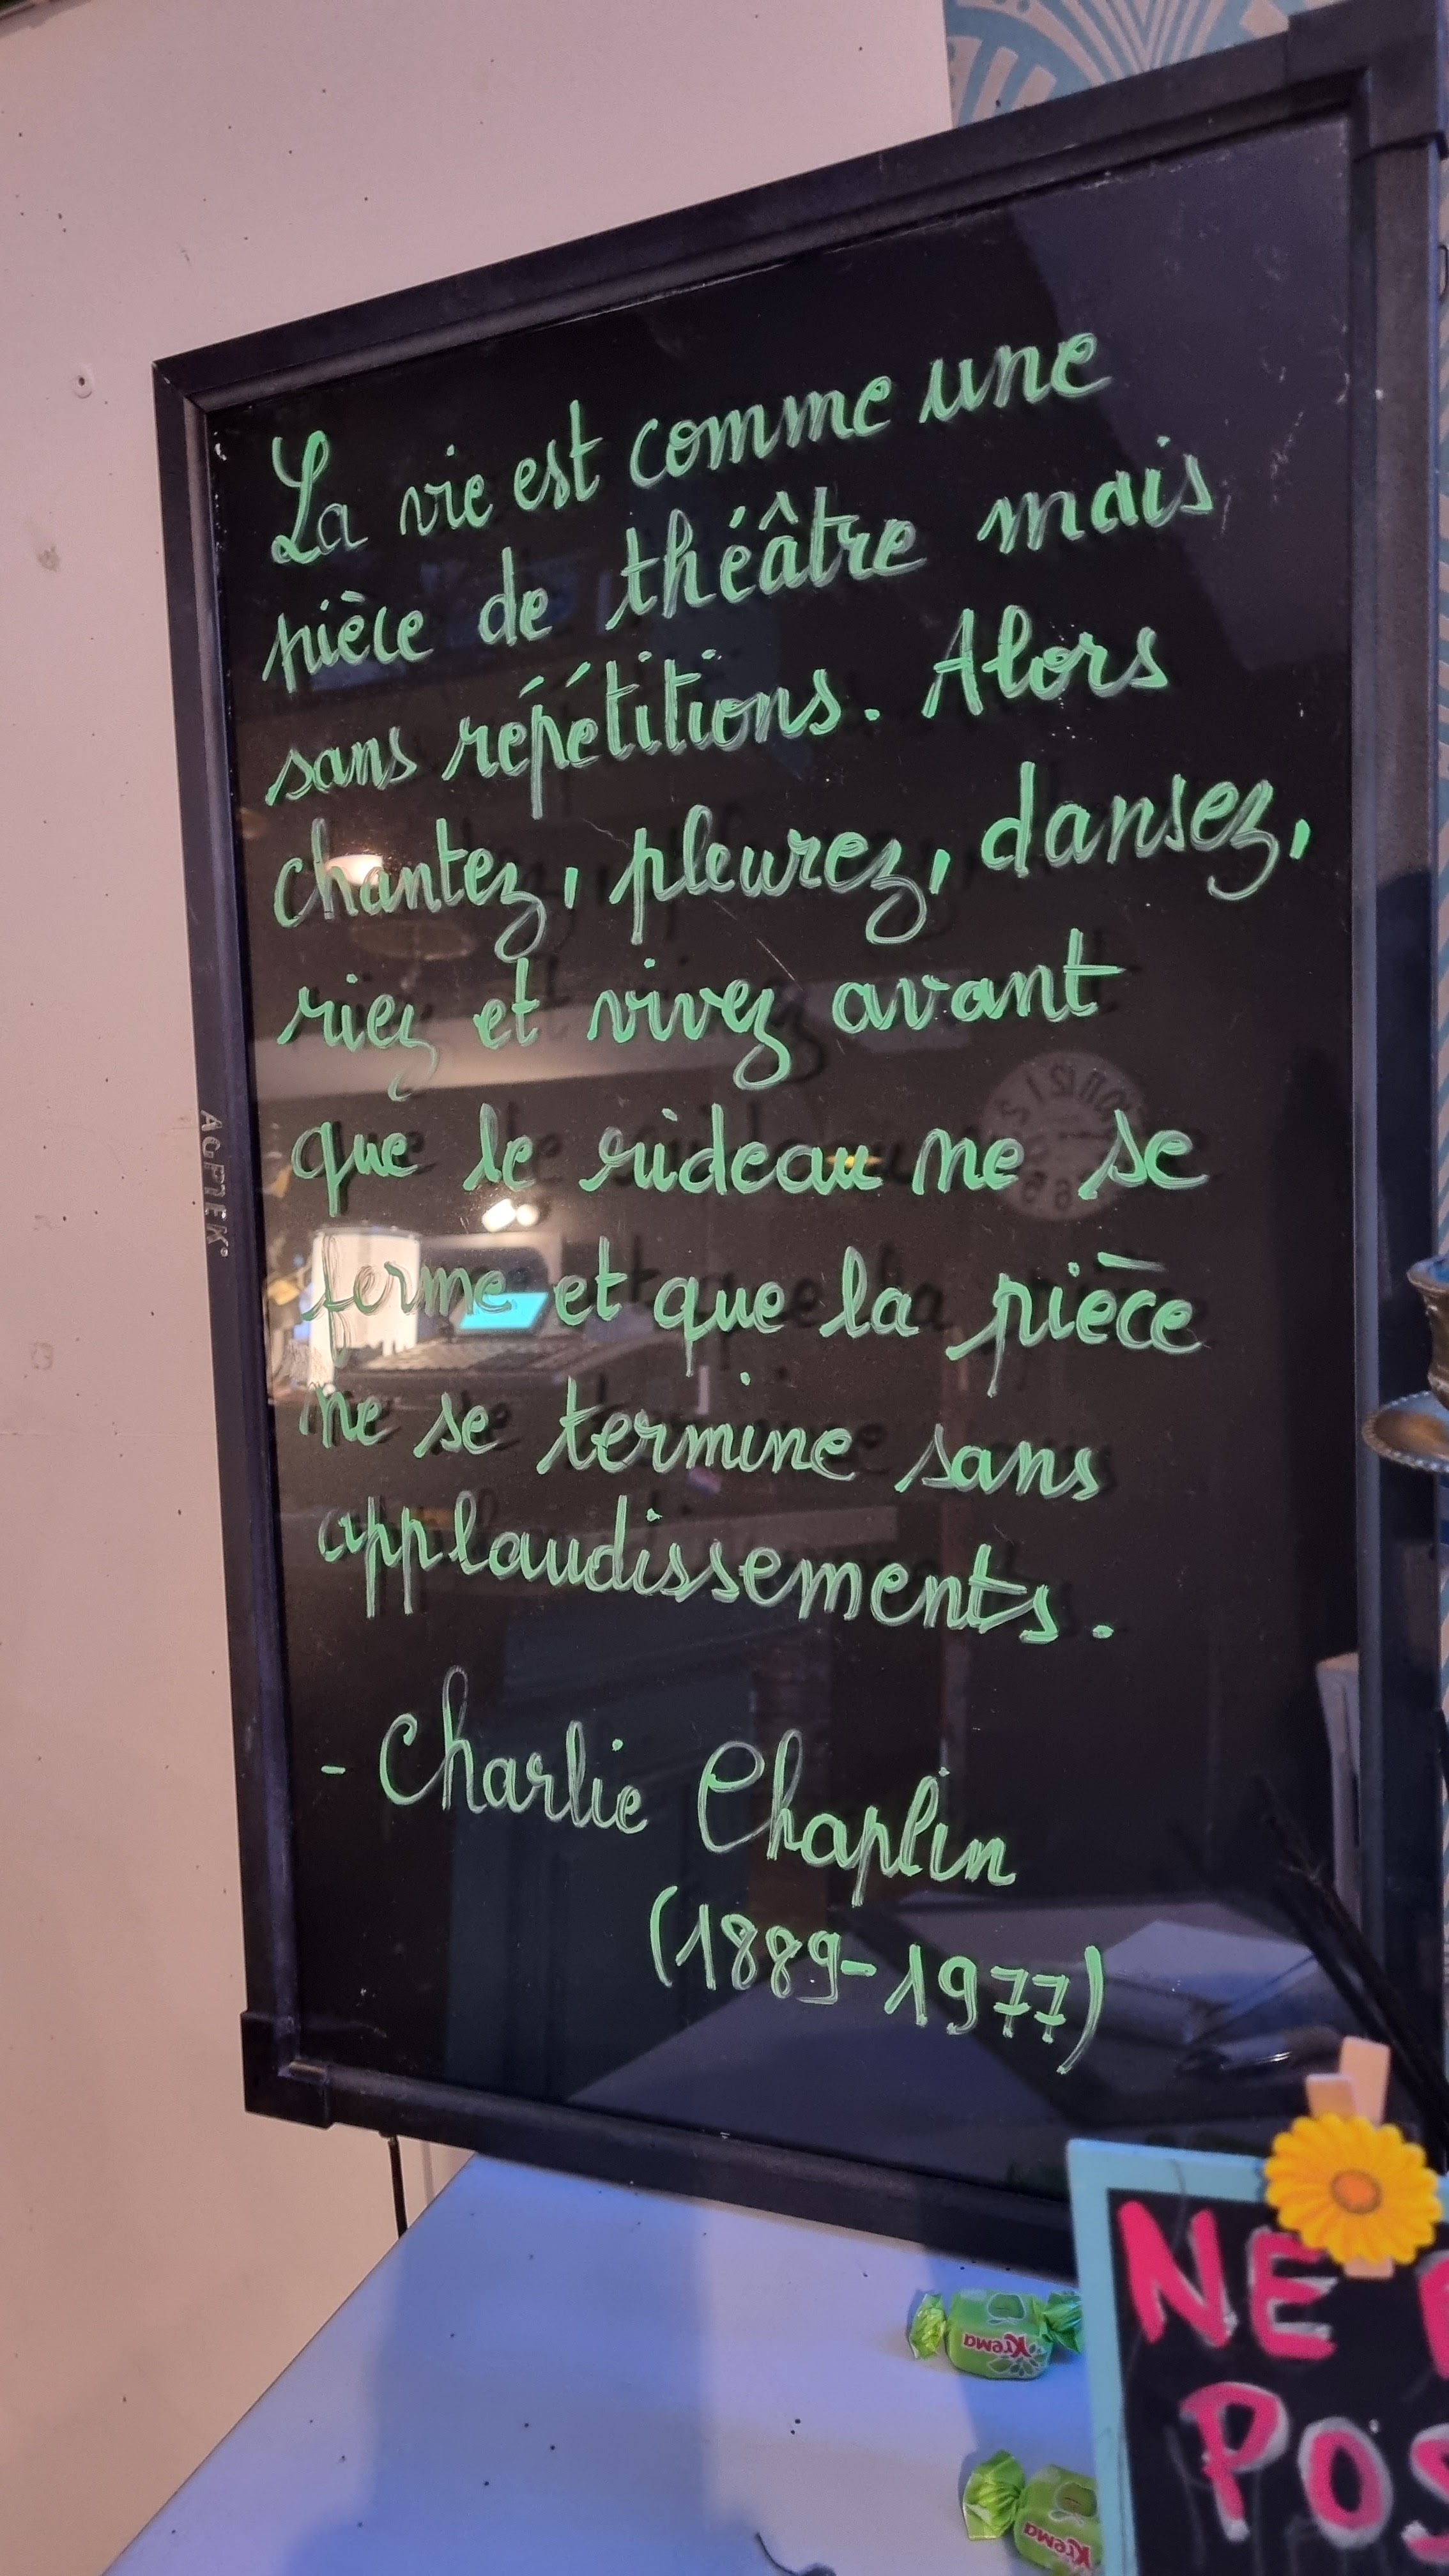 La vie est comme une
pièce de théâtre mais
sans répétitions. Alors
chantez, pleurez, dansez,
riez et vivez avant
que le rideau ne se
ferme et que la pièce
ne se termine sans
applaudissements.
- Charlie Chaplin
(1889-1977)
AGPTEK
Krema
Krema
NE
POS